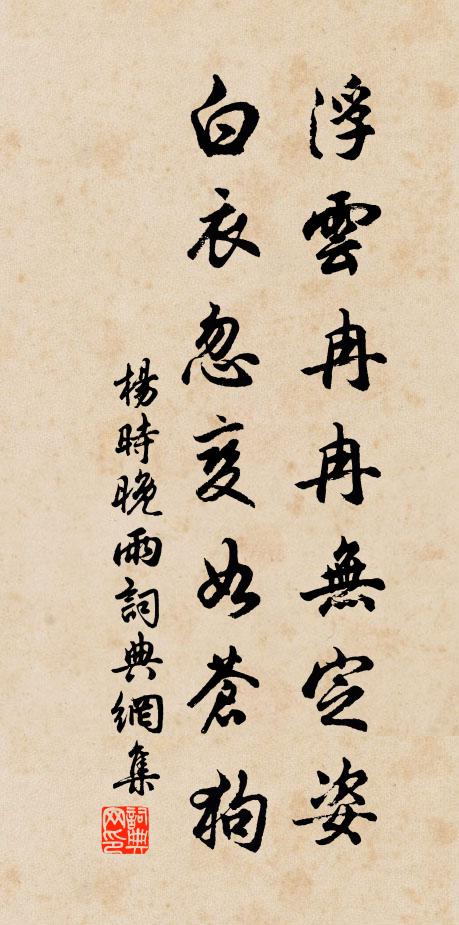 浮雲冉冉無定姿
白衣忽變如蒼狗
楊時晚雨詞典網集
詞典网印